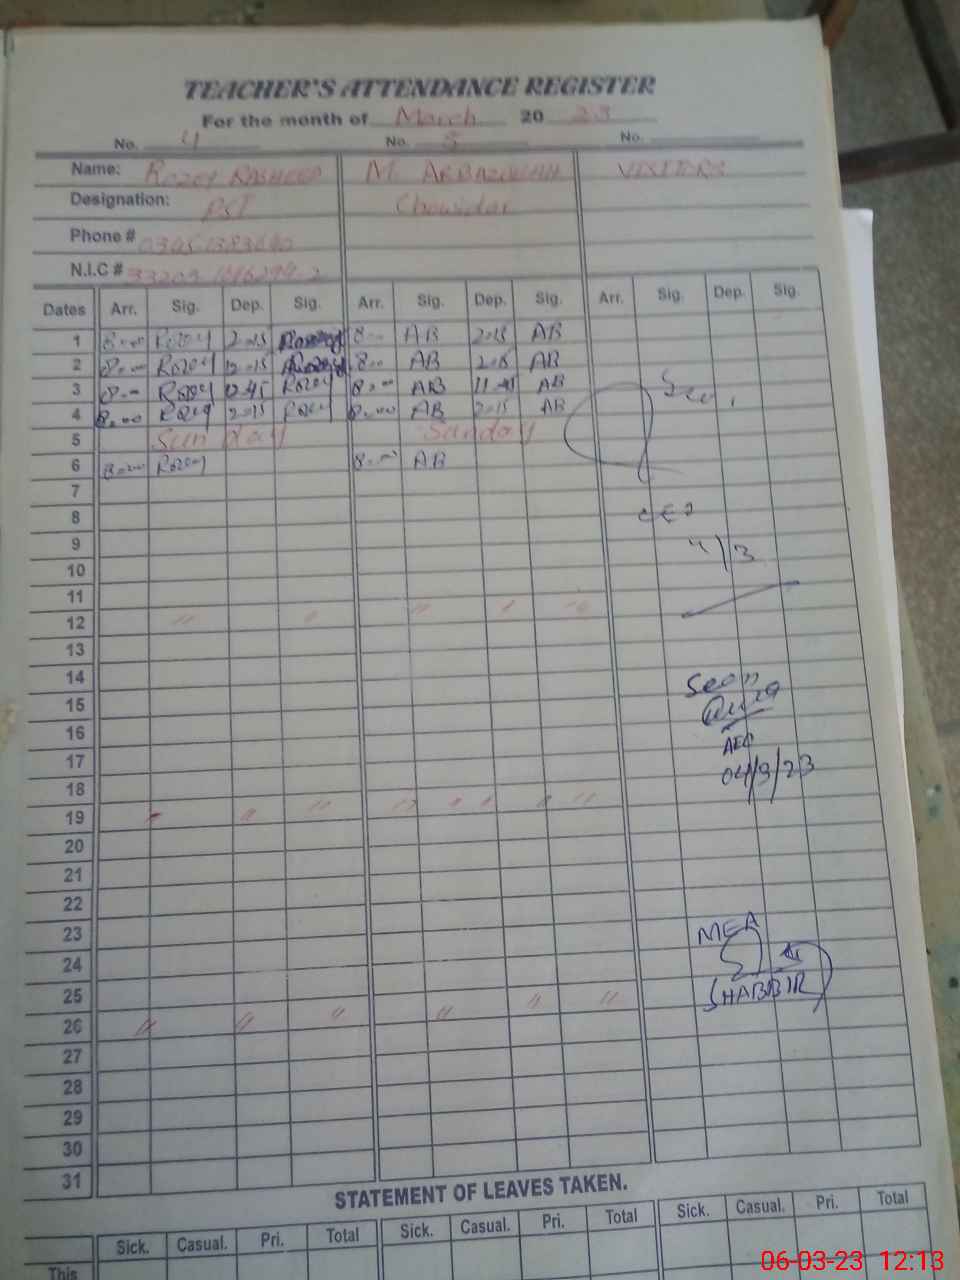 TEACHER'S ATTENDANCE REGISTER
For the month of March 20 23
No. 4 No. 5 No.
Name: ROZEY RASHEED M. VISITERS
Designation: PST Chowidar
Phone #
N.I.C #
Dates Arr. Sig. Dep. Sig. Arr. Sig. Dep. Sig. Arr. Sig. Dep. Sig.
1 8:00 Rozey 2:15 8:00 AB 2:15 AB
2 8:00 Rozey 12:15 8:00 AB 2:15 AB
3 8:00 Rozey 12:45 Rozey 8:00 AB 11:45 AB
4 8:00 Rozey 2:15 Rozey 8:00 AB 2:15 AB
5 Sunday Sunday
6 8:00 Rozey 8:00 AB
7
8
CEO
9
4/3
10
11
12 " " " " "
13
14
15
Seen
16
17
AEO
18
04/3/23
19 " " " " " " " "
20
21
22
23
MEA
24
25
SHABBIR
26 " " " " " "
27
28
29
30
31
STATEMENT OF LEAVES TAKEN.
Sick. Casual. Pri. Total Sick. Casual. Pri. Total Sick. Casual. Pri. Total
This
06-03-23 12:13